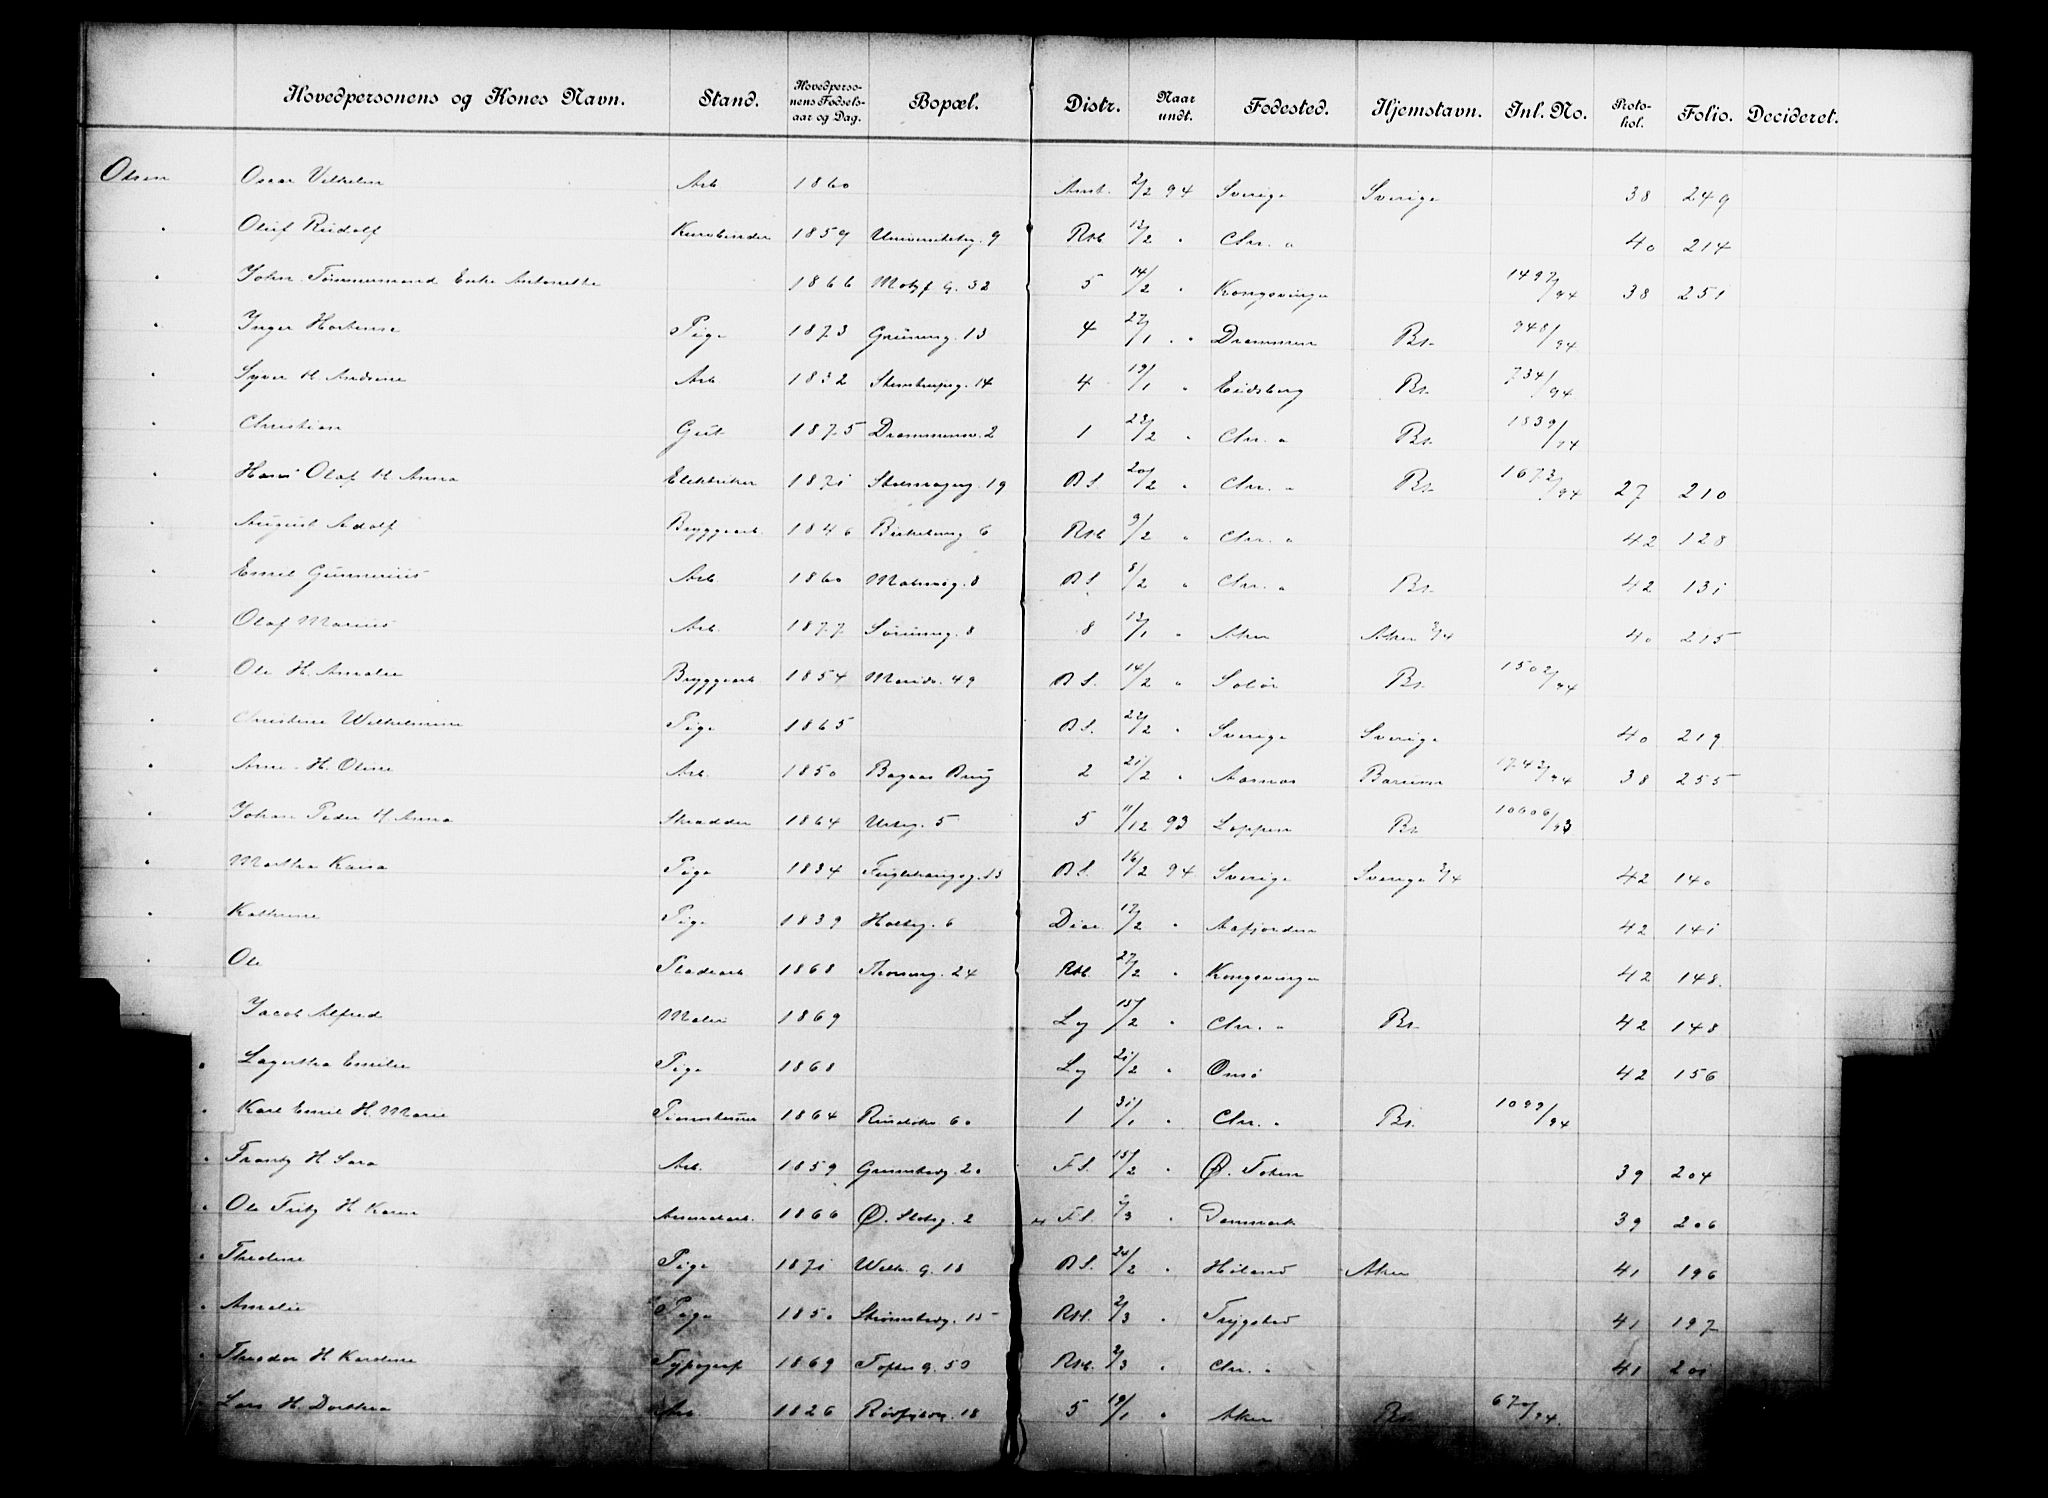 Hovedpersonens og Kones Navn. Stand. Hovedpersonens Fødselsaar og Dag. Bopæl. Distr. Naar undt. Fødested. Hjemstavn. Inl. No. Protokol. Folio. Decideret.
Olsen Oscar Vilhelm Arb 1860 Amb. 2/2 94 Sverige Sverige 38 249
" Oluf Rudolf 1859 Universitetsg. 9 Rst 12/2 " Chr. a 40 214
" John Tømmermand Enke Antonette 1866 Motzf. G. 32 5 14/2 " Kongsvinger 1497/94 38 251
" Inger Hortense Pige 1873 Grünerg. 13 4 27/1 " " Drammen Br. 948/94
" Syver H. Andrine Arb 1832 Stenstrupg. 14 4 19/1 " Eidsberg Br. 734/94
" Christian Gut 1875 Drammensv. 2 1 23/2 " Chr. a Br. 1839/94
" Hans Olaf H Anna Elektriker 1871 19 B S. 20/2 " Chr. a Br. 1672/94 27 210
" August Adolf Bryggearb. 1846 Birkelung 6 Rst 9/2 " Chr. a 42 128
" Emil Gunnerius Arb. 1860 Malmøg. 8 B S. 8/2 " Chr. a Br. 42 131
" Olaf Marius Arb. 1877 Sørumg. 8 8 12/1 " Aker Aker 3/4 40 215
" Ole H. Amalie Bryggearb 1854 Marids. 49 B S. 14/2 " Solør Br. 1502/94
" Christine Wilhelmine Pige 1865 B S. 22/2 " Sverige Sverige 40 219
" Arne H. Oline Arb. 1850 Bagaas Brug 2 21/2 " Aasnas Barum 1742/94 38 255
" Johan Peder H Anna Skrædder 1864 Urteg. 5 5 11/12 93 Loppen Br 10606/93
" Martha Kaisa Pige 1834 Fuglehaugsg. 13 B S. 16/2 94 Sverige Sverige 3/4 42 140
" Kathrine Pige 1839 Holteg. 6 Diac 17/2 " Aafjorden 42 141
" Ole Pladearb 1868 Thorung. 24 Rst. 27/2 " Kongsvinger 42 148.
" Jacob Alfred Maler 1869 Lg 15/2 " Chr. " Br. 42 148
" Lagertha Emilie Pige 1868 Lg 21/2 " Onsø 42 156
" Karl Emil H. Marie 1864 Ruseløkv. 60 1 31/1 " Chr. a Br. 1099/94
" Frantz H Sara Arb. 1859 20 F S. 15/2 " Ø. Toten 39 204
" Ole Fritz H Karen 1866 Ø. Slotsg. 2 F S. 2/3 " Danmark 39 206
" Thedine Pige 1871 Welh. G. 18 B S. 24/2 " Høland Aker 41 196
" Amalie Pige 1850 15 Rst. 2/3 " Trygstad 41 197
" Theodor H Kardine Typograf 1869 Toftes G. 50 Rst. 2/3 " Chr. " 41 201
" Lars H. Dorthea Arb. 1826 18 5 19/1 " Aker Br. 670/94.